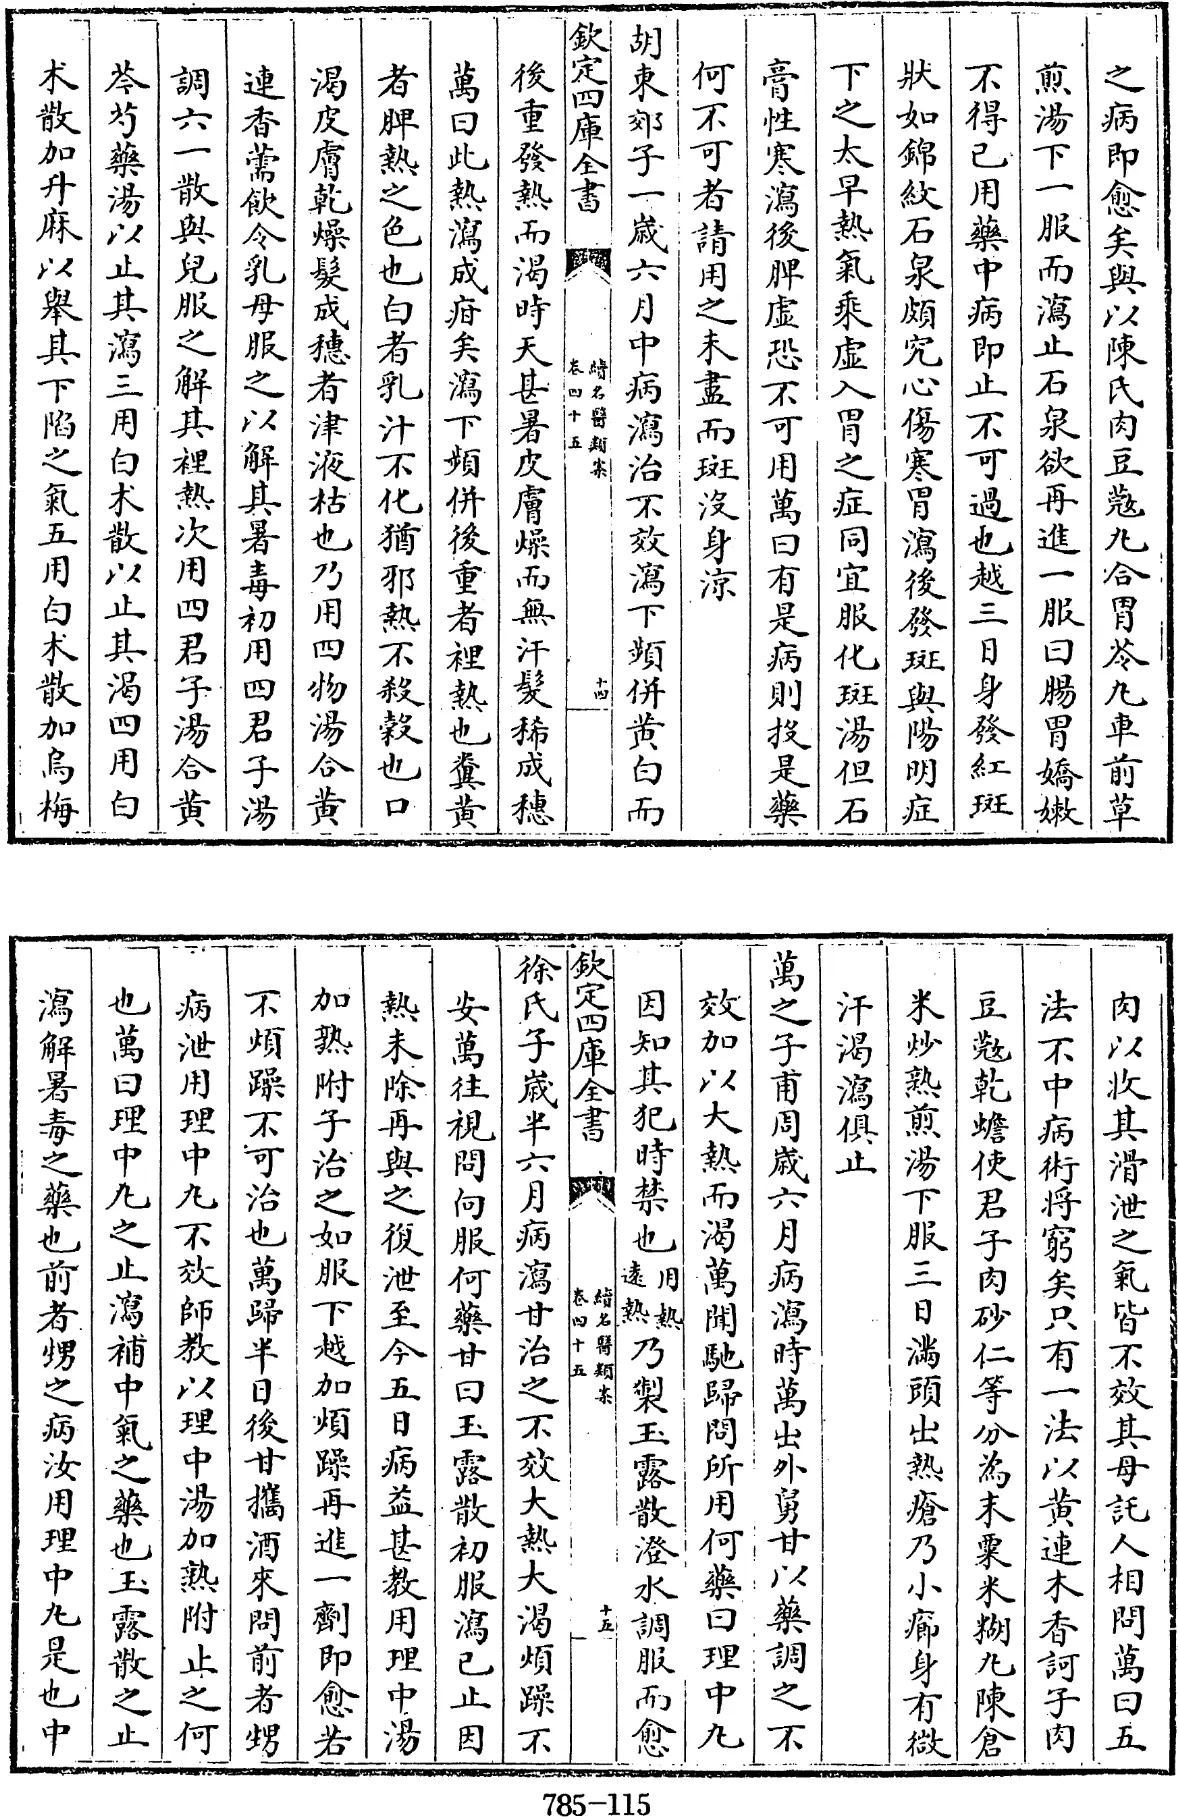 之病即愈矣與以陳氏肉豆蔻丸合胃苓丸車前草
煎湯下一服而瀉止石泉欲再進一服曰腸胃嬌嫩
不得已用藥中病即止不可過也越三日身發紅斑
狀如錦紋石泉頗究心傷寒胃瀉後發斑與陽明症
下之太早熱氣乘虛入胃之症同宜服化斑湯但石
膏性寒瀉後脾虛恐不可用萬曰有是病則投是藥
何不可者請用之未盡而斑没身涼
胡東郊子一歲六月中病瀉治不效瀉下頻併黄白而
欽定四庫全書
續名醫類案
卷四十五
十四
後重發熱而渴時天甚暑皮膚燥而無汗髮稀成穗
萬曰此熱瀉成疳矣瀉下頻併後重者裡熱也糞黄
者脾熱之色也白者乳汁不化猶邪熱不殺穀也口
渴皮膚乾燥髮成穗者津液枯也乃用四物湯合黄
連香薷飲令乳母服之以解其暑毒初用四君子湯
調六一散與兒服之解其裡熱次用四君子湯合黄
芩芍藥湯以止其瀉三用白术散以止其渴四用白
术散加升麻以舉其下陷之氣五用白术散加烏梅
肉以收其滑泄之氣皆不效其母託人相問萬曰五
法不中病術將窮矣只有一法以黄連木香訶子肉
豆蔻乾蟾使君子肉砂仁等分為末粟米糊丸陳倉
米炒熟煎湯下服三日滿頭出熱瘡乃小癤身有微
汗渴瀉俱止
萬之子甫周歲六月病瀉時萬出外舅甘以藥調之不
效加以大熱而渴萬聞馳歸問所用何藥曰理中丸
因知其犯時禁也用熱遠熱乃製玉露散澄水調服而愈
欽定四庫全書
續名醫類案
卷四十五
十五
徐氏子歲半六月病瀉甘治之不效大熱大渴煩躁不
安萬往視問向服何藥甘曰玉露散初服瀉已止因
熱未除再與之復泄至今五日病益甚教用理中湯
加熟附子治之如服下越加煩躁再進一劑即愈若
不煩躁不可治也萬歸半日後甘攜酒來問前者甥
病泄用理中丸不效師教以理中湯加熟附止之何
也萬曰理中丸之止瀉補中氣之藥也玉露散之止
瀉解暑毒之藥也前者甥之病汝用理中丸是也中
785-115